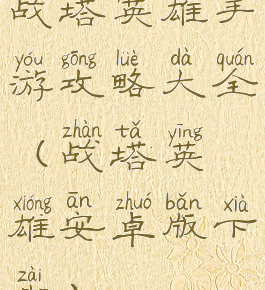 战塔英雄手
yóu gōng lüè dà quán
游攻略大全
zhàn tǎ yīng
(战塔英
xióng ān zhuó bǎn xià
雄安卓版下
zài